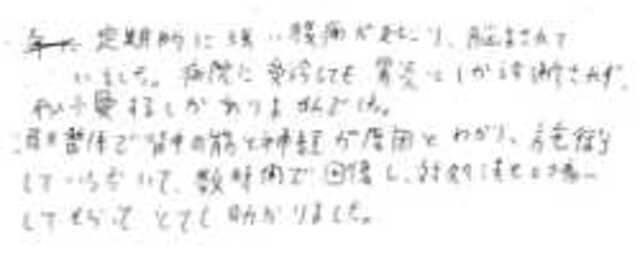 定期的に強い腹痛が起こり、悩まされて
いました。病院に受診しても胃炎としか診断されず、
するしかありませんでした。
整体で背中の筋と神経が原因とわかり、施術
していただいて、数時間で回復し、対処法も
してもらってとても助かりました。